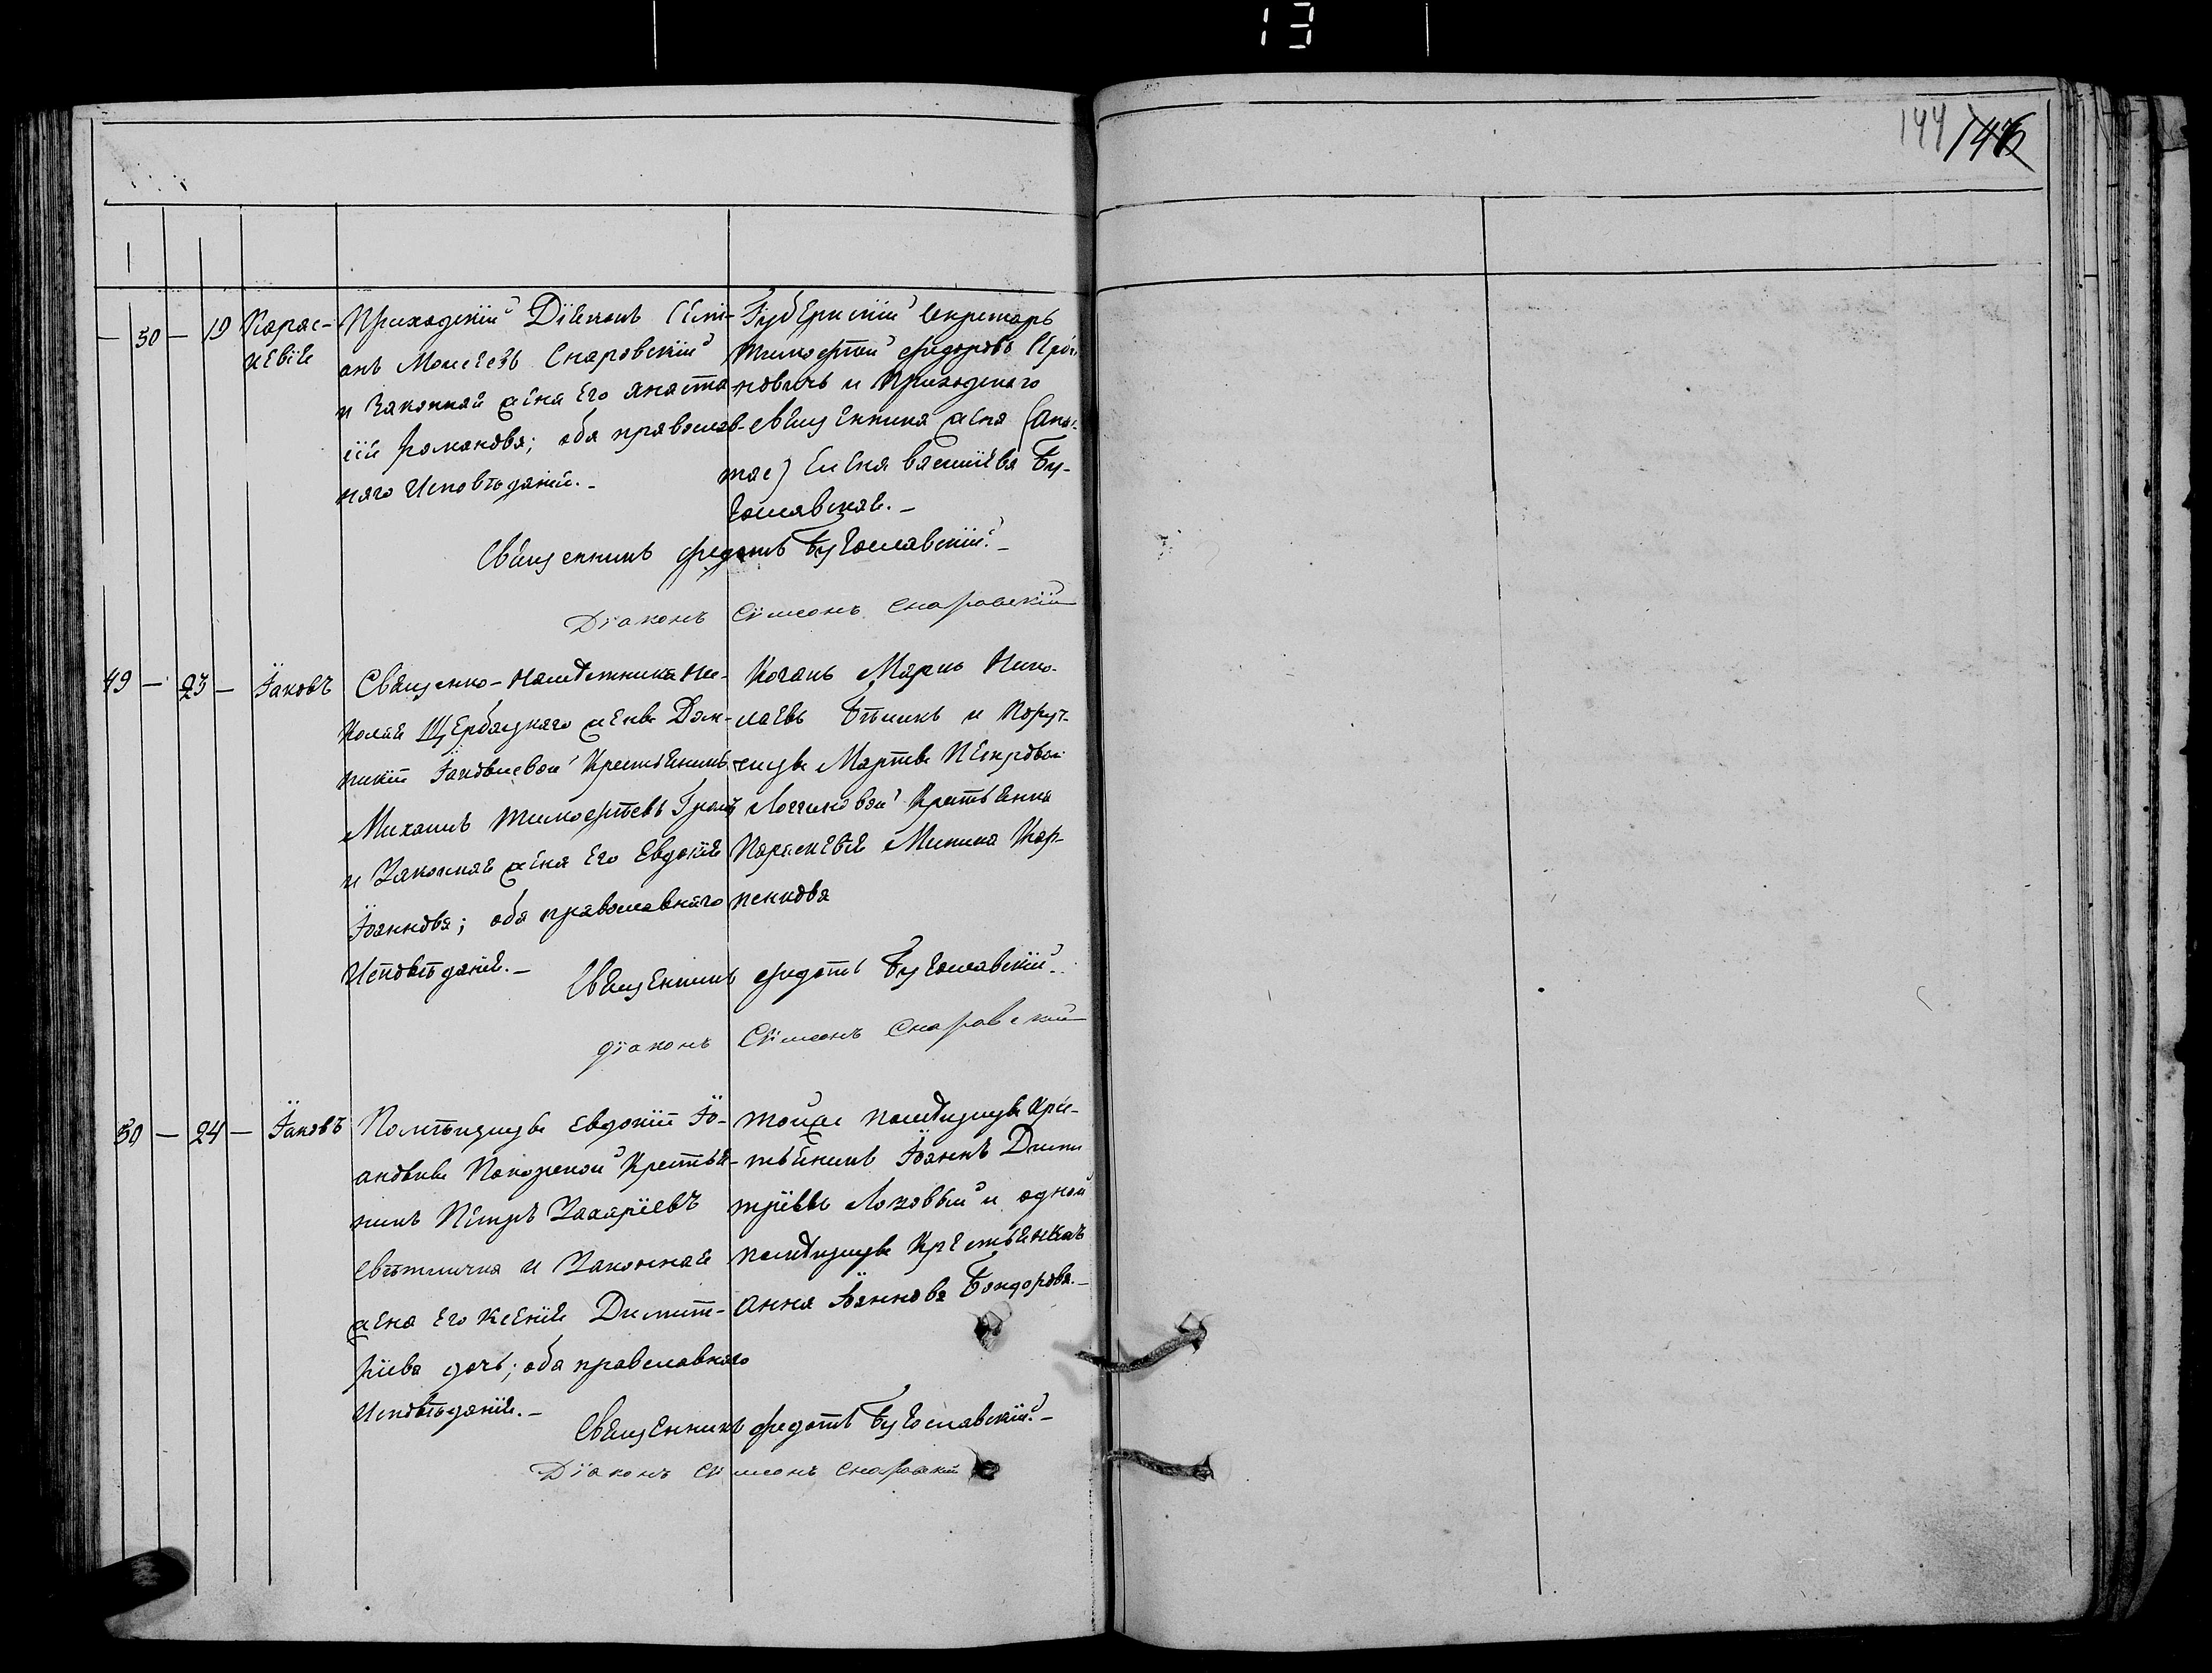 144 146
— 50 — 19 Парас-
кевія
Приходскій Діяконъ Симе-
онъ Моисеевъ Снаровскій
и законная жена его Анаста
сія Романова; оба православ-
наго исповѣданія. —
Губернскій секретарь
Тимофей Федоровъ
новичъ и приходскаго
священника жена
Елена Василіева Бу-
гославская. —
Священникъ Федотъ Бугославскій. —
Діаконъ Симеонъ Снаровскій
49 — 23 — Іаковъ
Священно-
колая Щербацкаго жены
Іаковлевой крестьянинъ
Михаилъ Тимофѣевъ
и законная жена его Евдокія
Іоаннова; оба православнаго
исповѣданія. —
Марка Нико-
лаевъ и поруч-
ицы Марфы Петровой
крестьянка
Параскевія Минина Кар-
пенкова
Священникъ Федотъ Бугославскій.
діаконъ Симеонъ Снаровскій
50 — 24 — Іаковъ
Помѣщицы Евдокіи Іо-
анновны крестья-
нинъ Петръ Захаріевъ
Свѣтличка и законная
жена его Ксенія Димит-
ріева дочь; оба православнаго
исповѣданія. —
Тойже помѣщицы кре-
стьянинъ Іоаннъ Дими
тріевъ Лозовый и одной
помѣщицы крестьянка
Анна Іоаннова Бондорова. —
Священникъ Федотъ Бугославскій. —
Діаконъ Симеонъ Снаровскій